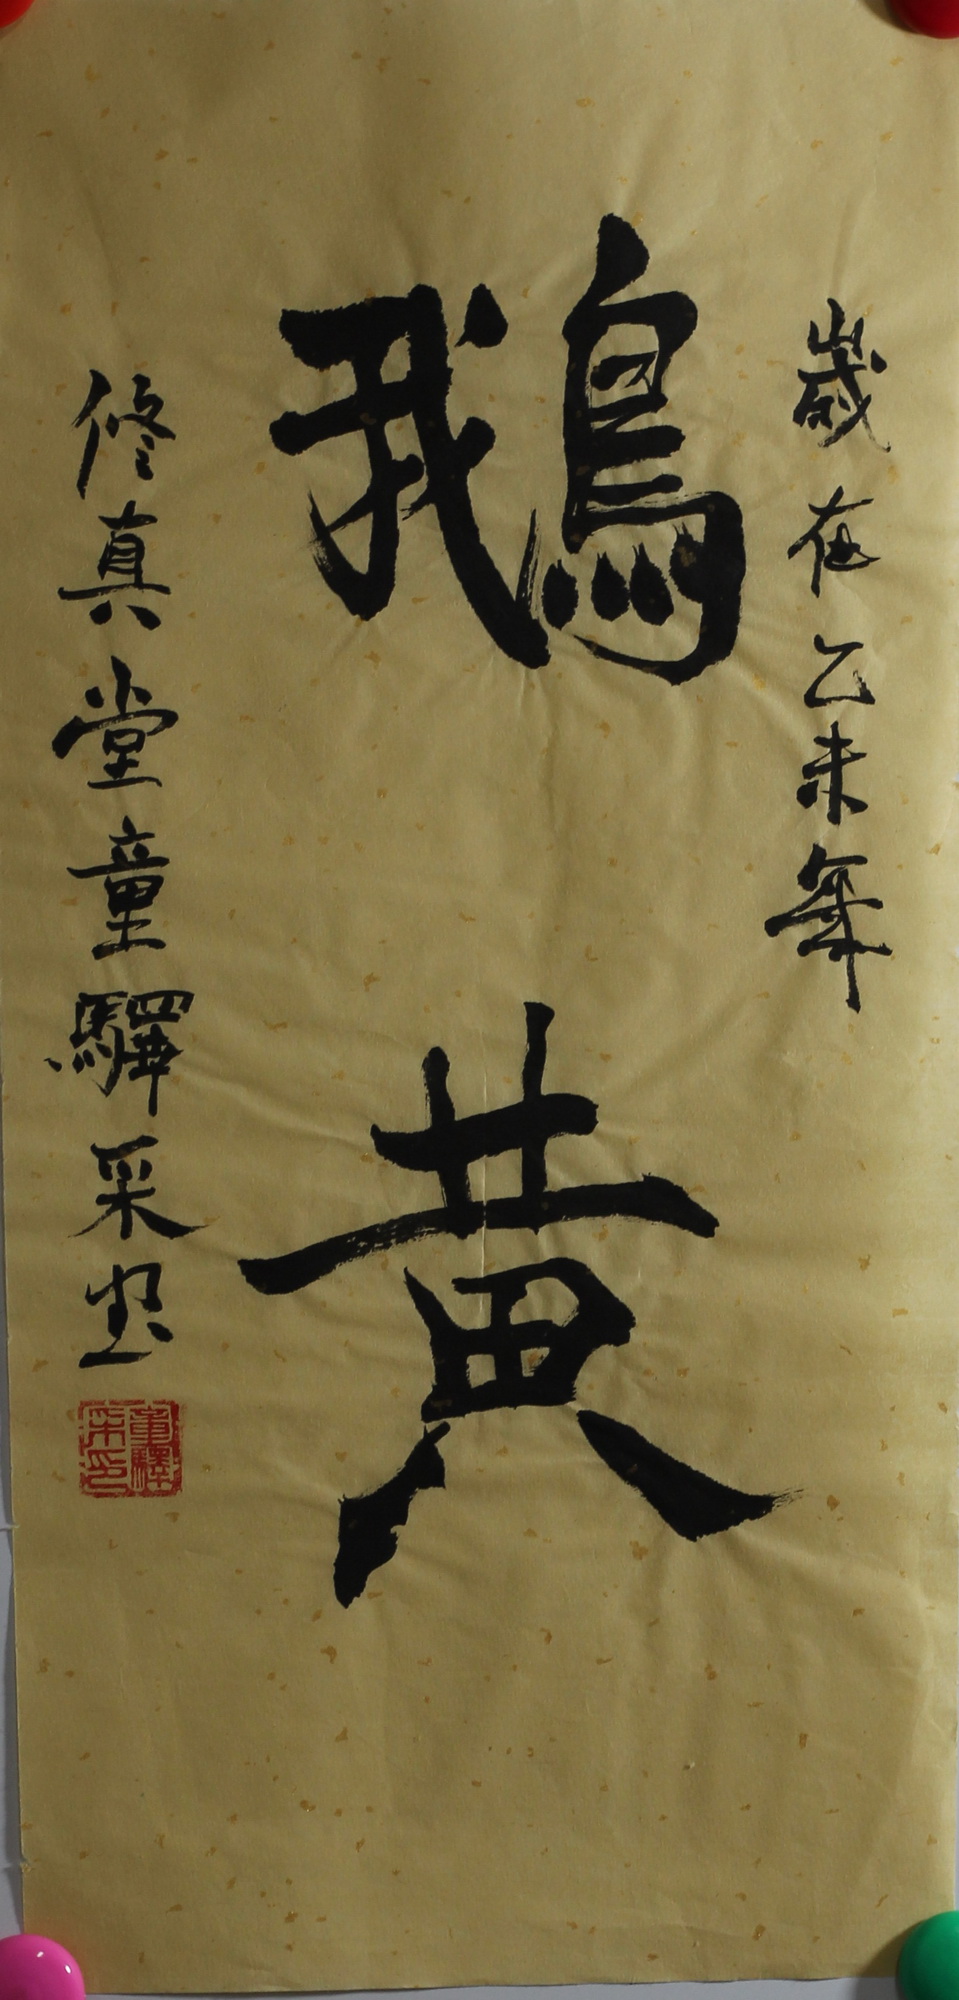 歲在乙未年
鵝黃
修真堂童驛采書
童驛采印